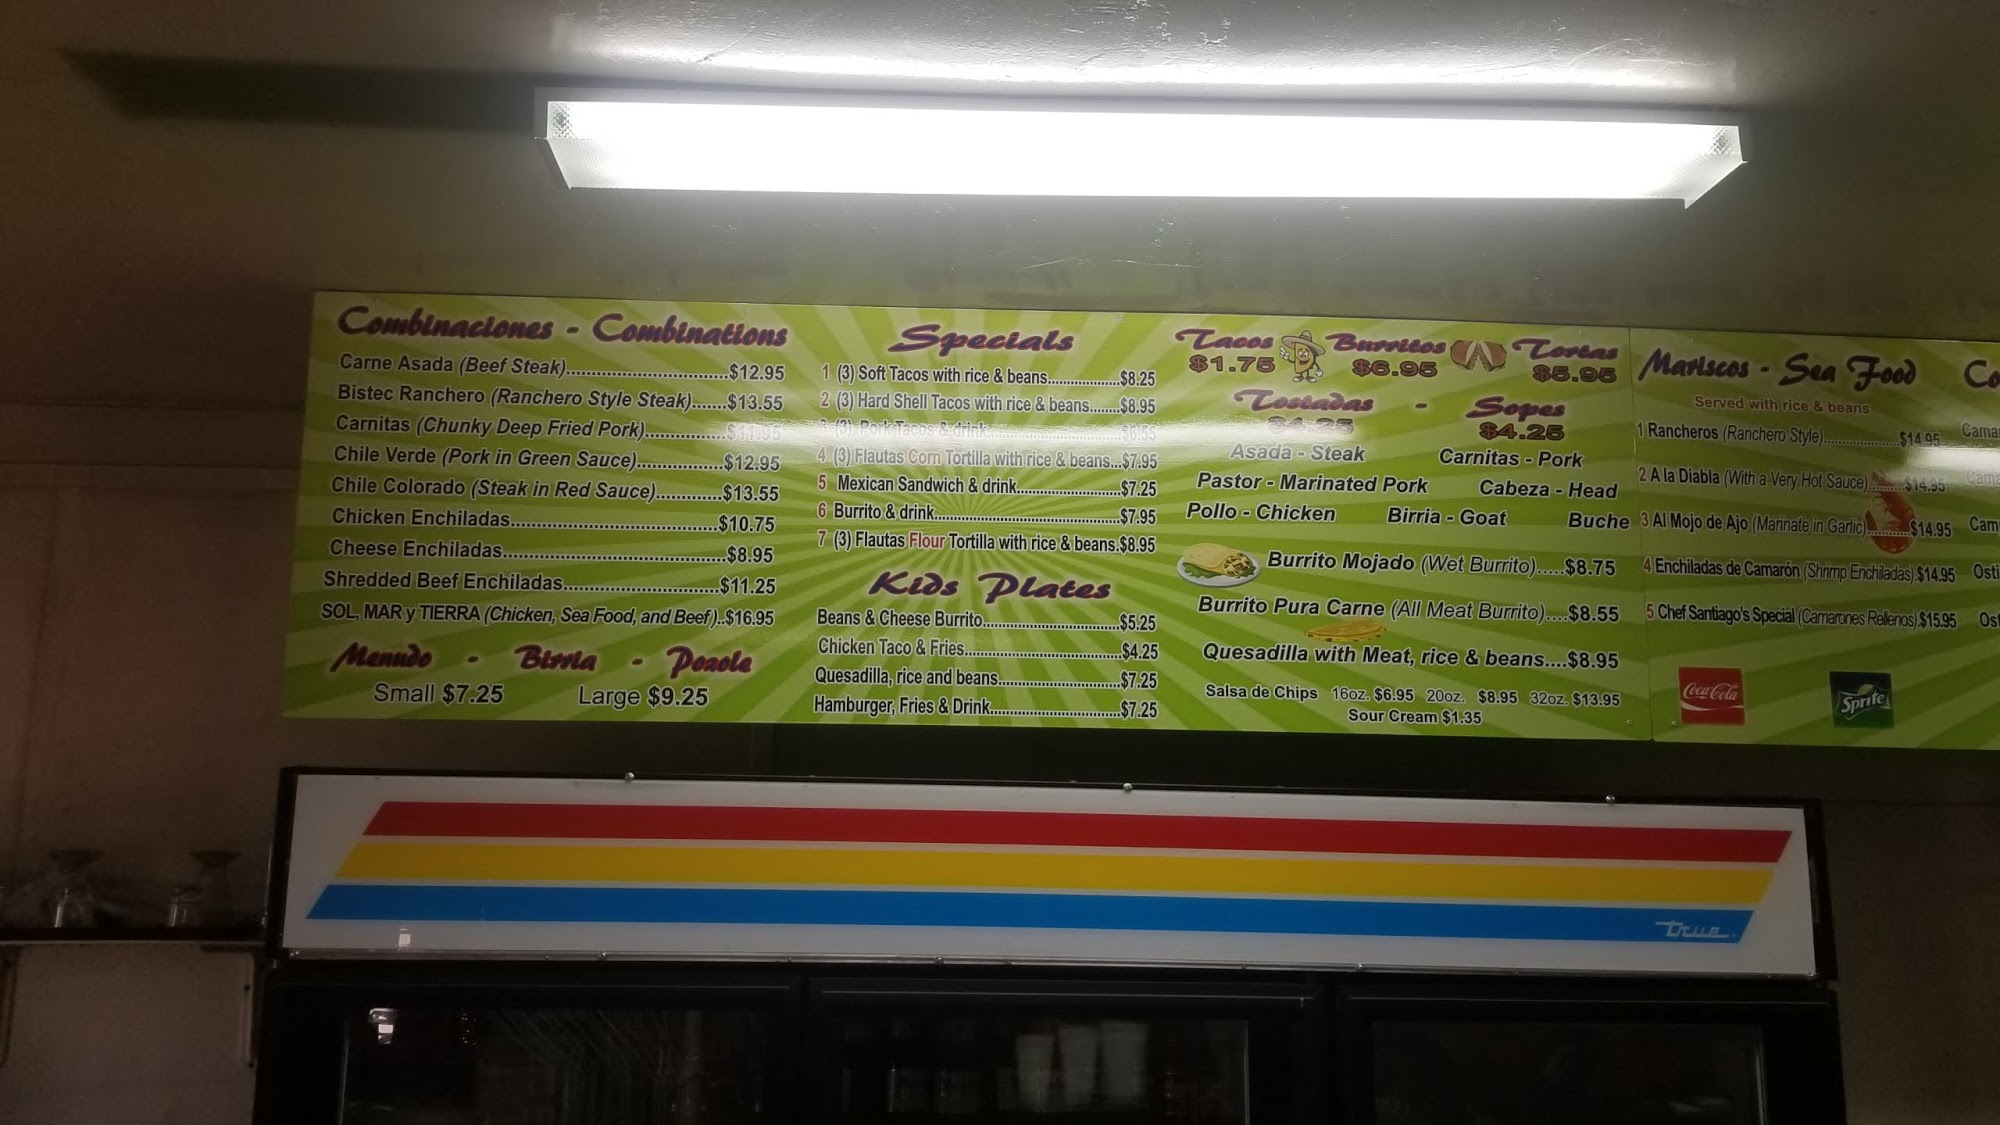 Combinaciones - Combinations
Carne Asada (Beef Steak)..............................$12.95
Bistec Ranchero (Ranchero Style Steak).......$13.55
Carnitas (Chunky Deep Fried Pork)...............$11.95
Chile Verde (Pork in Green Sauce)................$12.95
Chile Colorado (Steak in Red Sauce)............$13.55
Chicken Enchiladas.......................................$10.75
Cheese Enchiladas..........................................$8.95
Shredded Beef Enchiladas.............................$11.25
SOL, MAR y TIERRA (Chicken, Sea Food, and Beef)..$16.95
Menudo - Birria - Pozole
Small $7.25 Large $9.25
Specials
1 (3) Soft Tacos with rice & beans...................$8.25
2 (3) Hard Shell Tacos with rice & beans........$8.95
3 (3) Pork Tacos & drink
4 (3) Flautas Corn Tortilla with rice & beans...$7.95
5 Mexican Sandwich & drink..........................$7.25
6 Burrito & drink...............................................$7.95
7 (3) Flautas Flour Tortilla with rice & beans.$8.95
Kids Plates
Beans & Cheese Burrito..................................$5.25
Chicken Taco & Fries.......................................$4.25
Quesadilla, rice and beans..............................$7.25
Hamburger, Fries & Drink................................$7.25
Tacos Burritos Tortas
$1.75 $6.95 $5.95
Tostadas - Sopes
$4.25 $4.25
Asada - Steak Carnitas - Pork
Pastor - Marinated Pork Cabeza - Head
Pollo - Chicken Birria - Goat Buche
Burrito Mojado (Wet Burrito).....$8.75
Burrito Pura Carne (All Meat Burrito)....$8.55
Quesadilla with Meat, rice & beans....$8.95
Salsa de Chips 16oz. $6.95 20oz. $8.95 32oz. $13.95
Sour Cream $1.35
Mariscos - Sea Food
Served with rice & beans
1 Rancheros (Ranchero Style)....................$14.95
2 A la Diabla (With a Very Hot Sauce).........$14.95
3 Al Mojo de Ajo (Marinate in Garlic)...........$14.95
4 Enchiladas de Camarón (Shrimp Enchiladas).$14.95
5 Chef Santiago's Special (Camarones Rellenos).$15.95
Co
Cama
Cama
Cam
Osti
Ost
Coca-Cola
Sprite
true